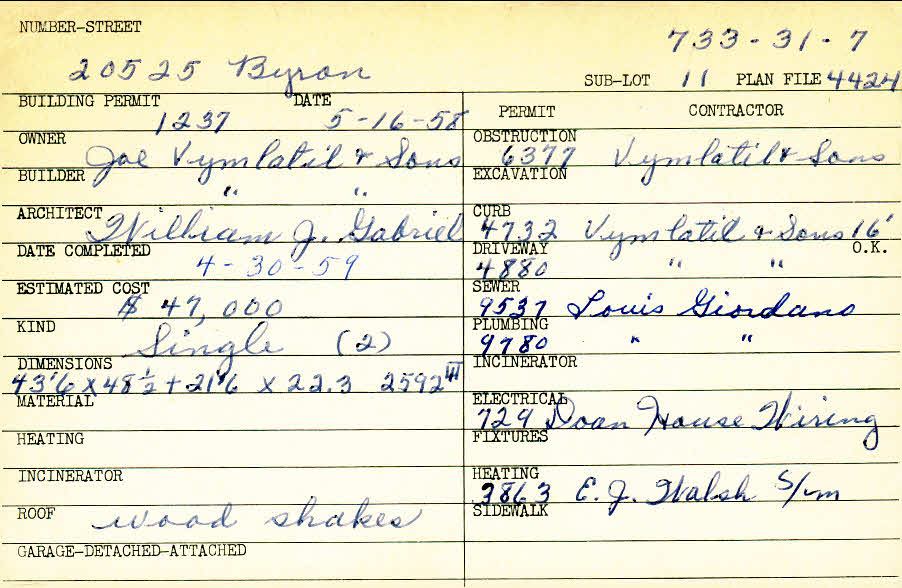 NUMBER-STREET
733-31-7
20525 Byron
SUB-LOT 11 PLAN FILE 4424
BUILDING PERMIT DATE
1237 5-16-58
PERMIT CONTRACTOR
OWNER
Joe Vymlatil & Sons
OBSTRUCTION
6377 Vymlatil & Sons
BUILDER
" "
EXCAVATION
ARCHITECT
William J. Gabriel
CURB
4732 Vymlatil & Sons 16'
O.K.
DATE COMPLETED
4-30-59
DRIVEWAY
4880 " "
ESTIMATED COST
$ 47,000
SEWER
9537 Louis Giordano
KIND
Single (2)
PLUMBING
9780 " "
DIMENSIONS
43'6 x 48 1/2 + 21'6 x 22.3 2592
INCINERATOR
MATERIAL
ELECTRICAL
729 Doan House Wiring
HEATING
FIXTURES
INCINERATOR
HEATING
3863 E. J. Walsh S/m
ROOF wood shakes
SIDEWALK
GARAGE-DETACHED-ATTACHED